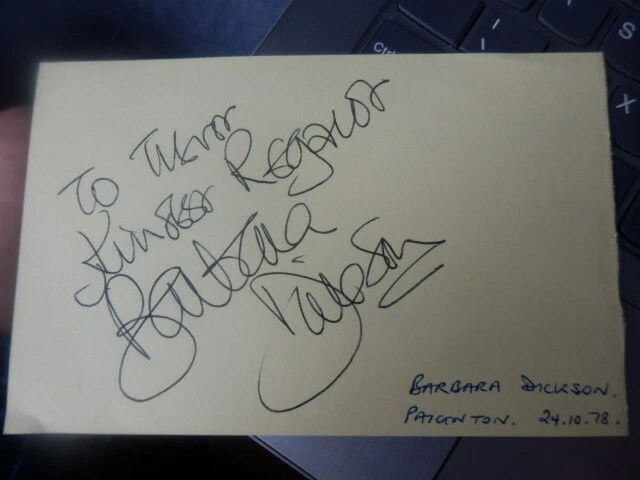 To Trevor
Kindest Regards
Barbara
Dickson
BARBARA DICKSON.
PAIGNTON. 24.10.78.
Ctrl
S
X